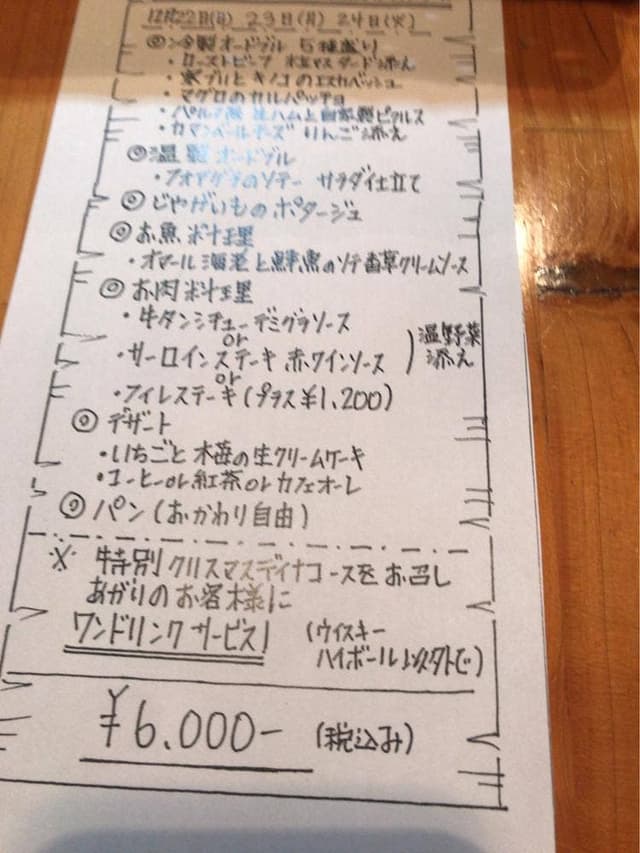 12月22日(日) 23日(月) 24日(火)
◎冷製オードブル 5種盛り
・ローストビーフ 粒マスタード添え
・寒ブリとキノコのエスカベッシュ
・マグロのカルパッチョ
・パルマ産 生ハムと自家製ピクルス
・カマンベールチーズ りんご添え
◎温製オードブル
・フォアグラのソテー サラダ仕立て
◎じゃがいものポタージュ
◎お魚料理
・オマール海老と鮮魚のソテ香草クリームソース
◎お肉料理
・牛タンシチューデミグラソース
or
・サーロインステーキ 赤ワインソース
or
・フィレステーキ(プラス¥1,200)
)温野菜
添え
◎デザート
・いちごと苺の生クリームケーキ
・コーヒーor紅茶orカフェオーレ
◎パン(おかわり自由)
※特別クリスマスディナコースをお召し
あがりのお客様に
ワンドリンクサービス!
(ウイスキー
ハイボール以外で)
¥6.000-(税込み)